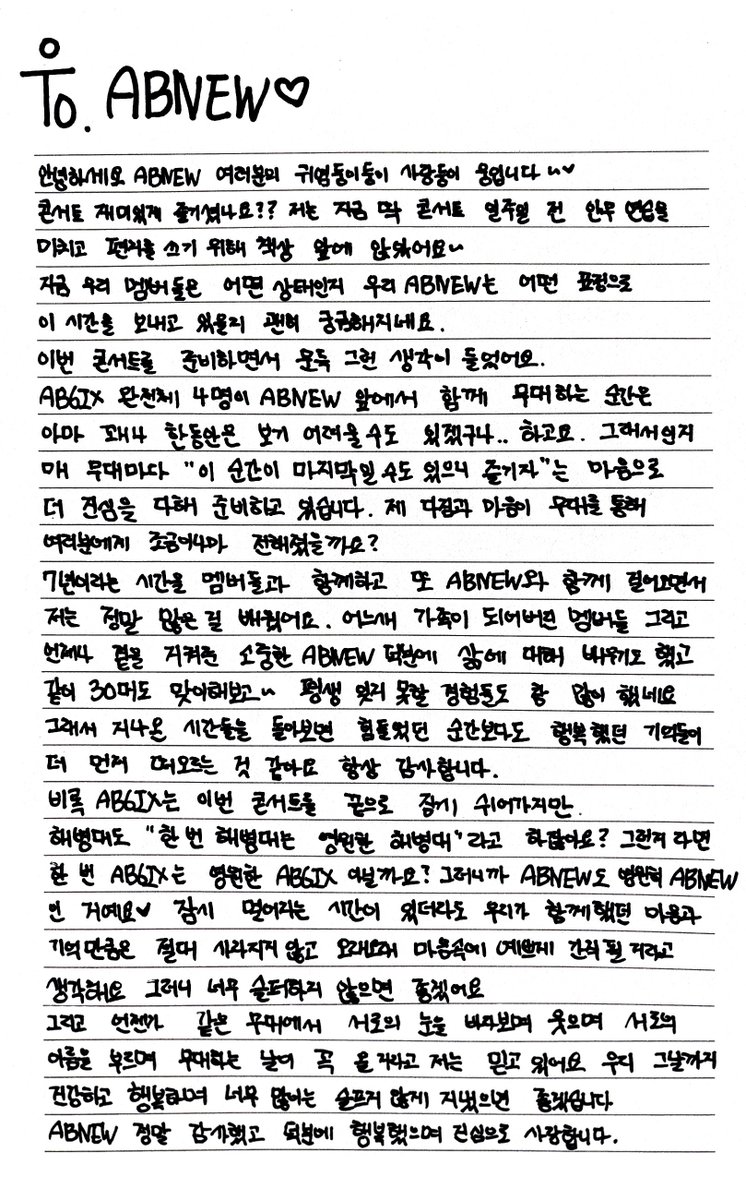 To. ABNEW♡
안녕하세요 ABNEW 여러분의 귀염둥이둥이 사랑둥이 웅입니다~♥
콘서트 재미있게 즐기셨나요?? 저는 지금 딱 콘서트 일주일 전 안무 연습을
마치고 편지를 쓰기 위해 책상 앞에 앉았어요~
지금 우리 멤버들은 어떤 상태인지 우리 ABNEW는 어떤 표정으로
이 시간을 보내고 있을지 괜히 궁금해지네요.
이번 콘서트를 준비하면서 문득 그런 생각이 들었어요.
AB6IX 완전체 4명이 ABNEW 앞에서 함께 무대하는 순간은
아마 꽤나 한동안은 보기 어려울수도 있겠구나.. 하고요. 그래서인지
매 무대마다 "이 순간이 마지막일 수도 있으니 즐기자"는 마음으로
더 진심을 다해 준비하고 있습니다. 제 다짐과 마음이 무대를 통해
여러분에게 조금이나마 전해졌을까요?
7년이라는 시간을 멤버들과 함께하고 또 ABNEW와 함께 걸어오면서
저는 정말 많은 걸 배웠어요. 어느새 가족이 되어버린 멤버들 그리고
언제나 곁을 지켜준 소중한 ABNEW 덕분에 삶에 대해 배우기도 했고
같이 30대도 맞이해보고~ 평생 잊지 못할 경험들도 참 많이 했네요
그래서 지나온 시간들을 돌아보면 힘들었던 순간보다도 행복했던 기억들이
더 먼저 떠오르는 것 같아요 항상 감사합니다.
비록 AB6IX는 이번 콘서트를 끝으로 잠시 쉬어가지만
해병대도 "한 번 해병대는 영원한 해병대"라고 하잖아요? 그런거 라면
한 번 AB6IX는 영원한 AB6IX 아닐까요? 그러니까 ABNEW도 영원히 ABNEW
인 거예요♥ 잠시 멀어지는 시간이 있더라도 우리가 함께했던 마음과
기억만큼은 절대 사라지지 않고 오래오래 마음속에 예쁘게 간직 될 거라고
생각해요 그러니 너무 슬퍼하지 않으면 좋겠어요
그리고 언젠가 같은 무대에서 서로의 눈을 바라보며 웃으며 서로의
이름을 부르며 무대하는 날이 꼭 올거라고 저는 믿고 있어요 우리 그날까지
건강하고 행복하며 너무 많이는 슬프지 않게 지냈으면 좋겠습니다
ABNEW 정말 감사했고 덕분에 행복했으며 진심으로 사랑합니다.